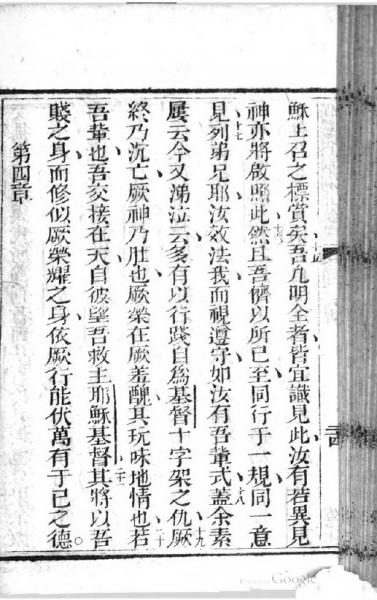 穌上召之標賞矣吾凡明全者皆宜識見此汝有若異見
十五
神亦將啟照此然且吾儕以所已至同行于一規同一意
十六
見列弟兄耶汝效法我而視遵守如汝有吾輩式蓋余素
十七
十八
屢云今又涕泣云多有以行踐自為基督十字架之仇厥
十九
終乃沉亡厥神乃肚也厥榮在厥羞醜其玩味地情也若
二十
吾輩也吾交接在天自彼望吾救主耶穌基督其將以吾
二十一
賤之身而修似厥榮耀之身依厥行能伏萬有于己之德。
第四章
Google